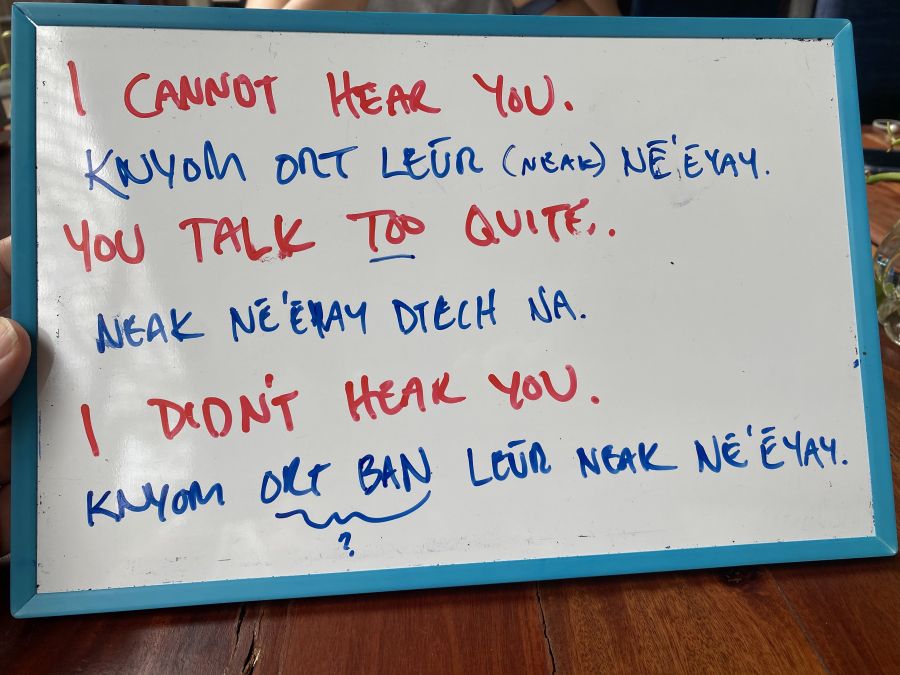 I CANNOT HEAR YOU.
KNYOM ORT LEŪR (NEAK) NĒ'ĒYAY.
YOU TALK TOO QUITE..
NEAK NĒ'ĒYAY DTECH NA.
I DIDN'T HEAR YOU.
KNYOM ORT BAN LEŪR NEAK NĒ'ĒYAY.
?